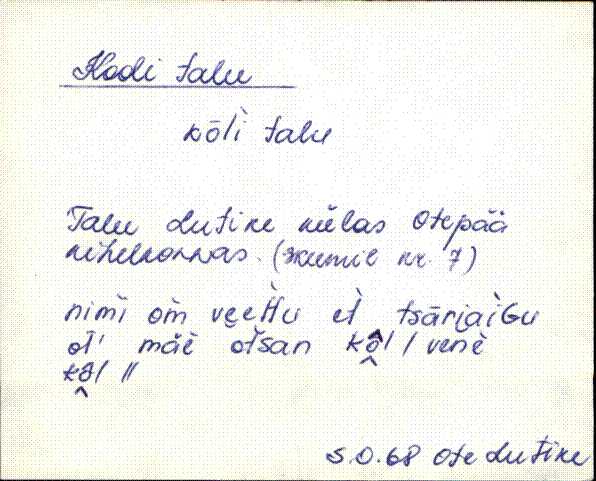 Kooli talu
kōĺi talu
Talu Lutike külas Otepää
kihelkonnas. (skeemil nr. 7)
nimi om veettü et tsāŕjaiGu
oĺ' mäe otsan kōl / vene
kōl //
S.O. 68 Ote Lutike